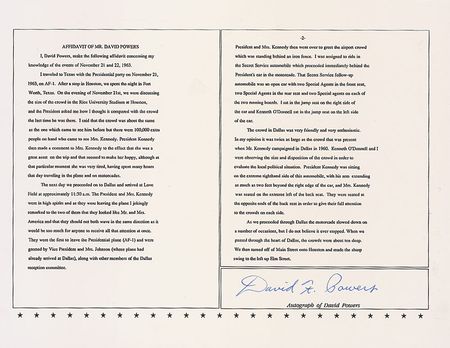 AFFIDAVIT OF MR. DAVID POWERS
I, David Powers, make the following affidavit concerning my
knowledge of the events of November 21 and 22, 1963.
I traveled to Texas with the Presidential party on November 21,
1963, on AF-1. After a stop in Houston, we spent the night in Fort
Worth, Texas. On the evening of November 21st, we were discussing
the size of the crowd in the Rice University Stadium at Houston,
and the President asked me how I thought it compared with the crowd
the last time he was there. I said that the crowd was about the same
as the one which came to see him before but there were 100,000 extra
people on hand who came to see Mrs. Kennedy. President Kennedy
then made a comment to Mrs. Kennedy to the effect that she was a
great asset on the trip and that seemed to make her happy, although at
that particular moment she was very tired, having spent many hours
that day traveling in the plane and on motorcades.
The next day we proceeded on to Dallas and arrived at Love
Field at approximately 11:50 a.m. The President and Mrs. Kennedy
were in high spirits and as they were leaving the plane I jokingly
remarked to the two of them that they looked like Mr. and Mrs.
America and that they should not both wave in the same direction as it
would be too much for anyone to receive all that attention at once.
They were the first to leave the Presidential plane (AF-1) and were
greeted by Vice President and Mrs. Johnson (whose plane had
already arrived at Dallas), along with other members of the Dallas
reception committee.
-2-
President and Mrs. Kennedy then went over to greet the airport crowd
which was standing behind an iron fence. I was assigned to ride in
the Secret Service automobile which proceeded immediately behind the
President's car in the motorcade. That Secret Service follow-up
automobile was an open car with two Special Agents in the front seat,
two Special Agents in the rear seat and two Special agents on each of
the two running boards. I sat in the jump seat on the right side of
the car and Kenneth O'Donnell sat in the jump seat on the left side
of the car.
The crowd in Dallas was very friendly and very enthusiastic.
In my opinion it was twice as large as the crowd that was present
when Mr. Kennedy campaigned in Dallas in 1960. Kenneth O'Donnell and I
were observing the size and disposition of the crowd in order to
evaluate the local political situation. President Kennedy was sitting
on the extreme righthand side of this automobile, with his arm extending
as much as two feet beyond the right edge of the car, and Mrs. Kennedy
was seated on the extreme left of the back seat. They were seated at
the opposite ends of the back seat in order to give their full attention
to the crowds on each side.
As we proceeded through Dallas the motorcade slowed down on
a number of occasions, but I do not believe it ever stopped. When we
passed through the heart of Dallas, the crowds were about ten deep.
We then turned off of Main Street onto Houston and made the sharp
swing to the left up Elm Street.
David F. Powers
Autograph of David Powers